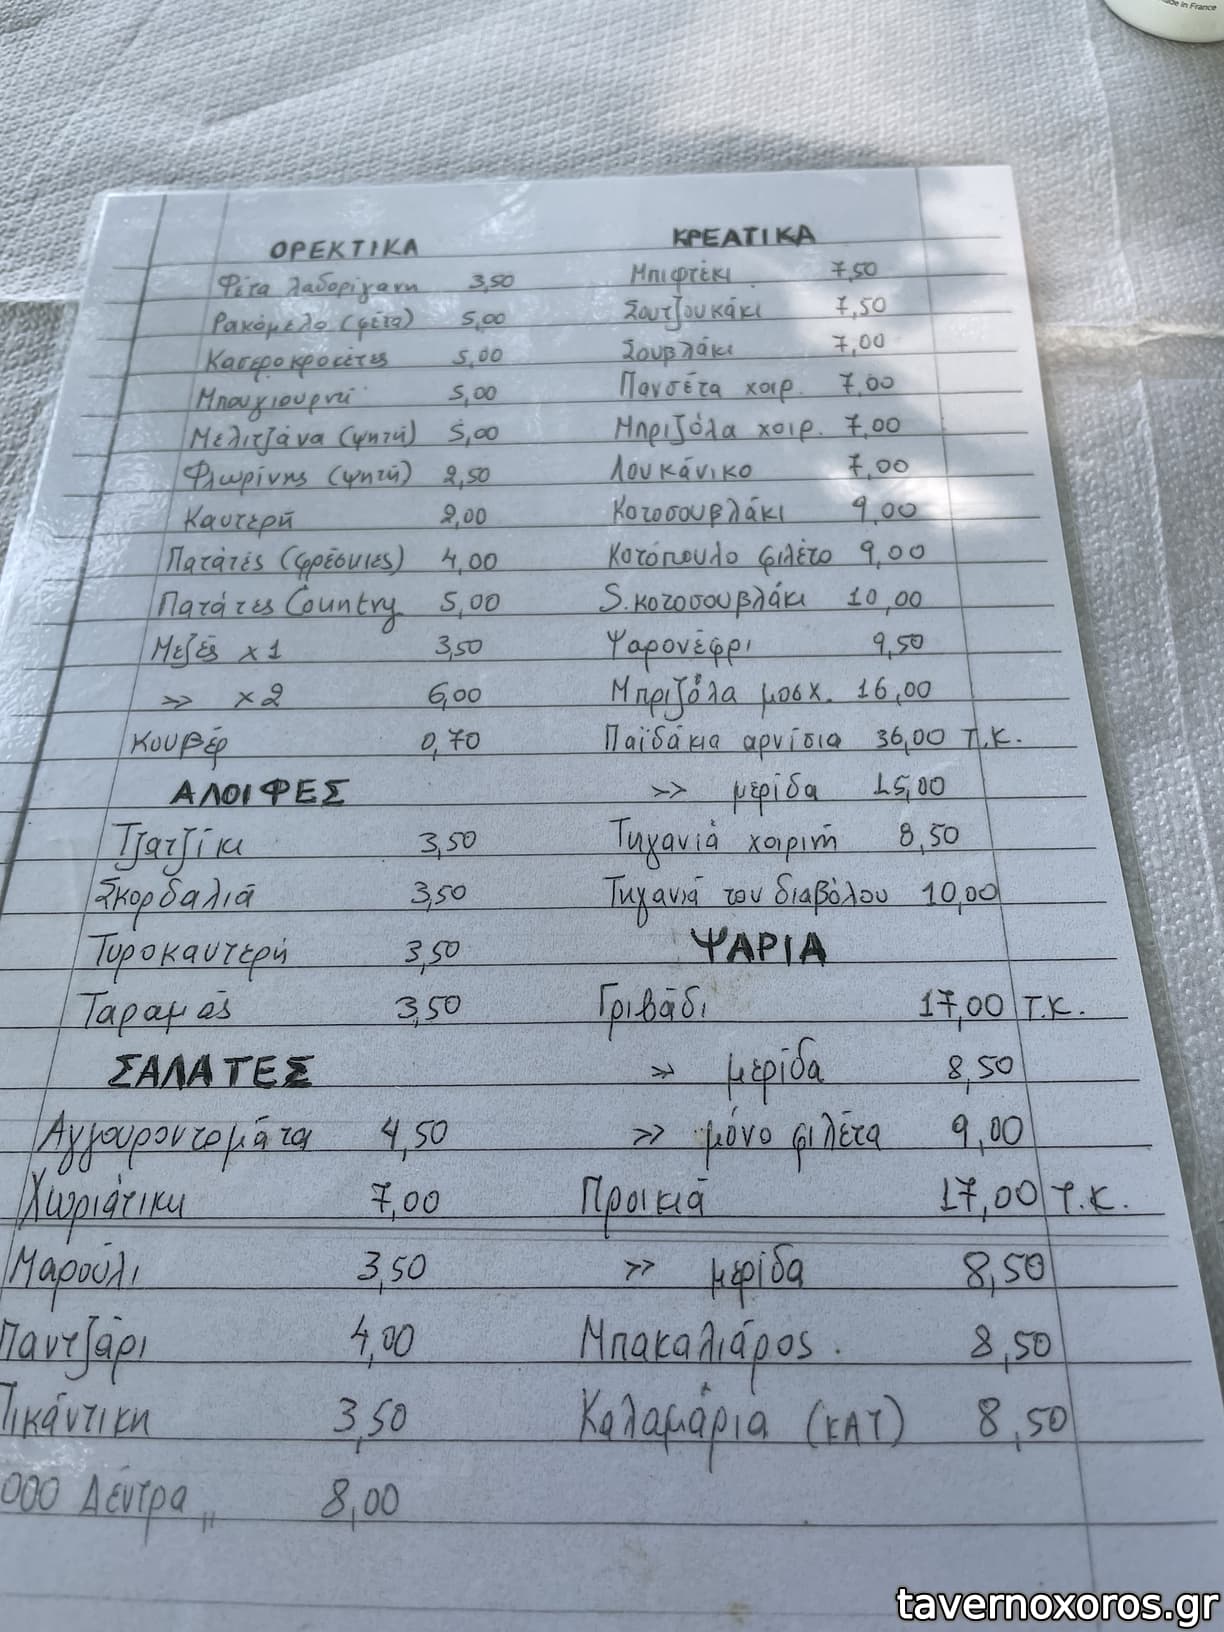 Made in France
ΟΡΕΚΤΙΚΑ
Φέτα λαδορίγανη 3,50
Ρακόμελο (φέτα) 5,00
Κασεροκροκέτες 5,00
Μπουγιουρντί 5,00
Μελιτζάνα (ψητή) 5,00
Φλωρίνης (ψητή) 2,50
Καυτερή 2,00
Πατάτές (φρέσκιες) 4,00
Πατάτες Country 5,00
Μεζές x1 3,50
>> x2 6,00
Κουβέρ 0,70
ΑΛΟΙΦΕΣ
Τζατζίκι 3,50
Σκορδαλιά 3,50
Τυροκαυτερή 3,50
Ταραμάς 3,50
ΣΑΛΑΤΕΣ
Αγγουροντομάτα 4,50
Χωριάτικη 7,00
Μαρούλι 3,50
Παντζάρι 4,00
Πικάντικη 3,50
000 Δέντρα" 8,00
ΚΡΕΑΤΙΚΑ
Μπιφτέκι 7,50
Σουτζουκάκι 7,50
Σουβλάκι 7,00
Πανσέτα χοιρ. 7,00
Μπριζόλα χοιρ. 7,00
Λουκάνικο 7,00
Κοτοσουβλάκι 9,00
Κοτόπουλο φιλέτο 9,00
S.κοτοσουβλάκι 10,00
Ψαρονέφρι 9,50
Μπριζόλα μοσχ. 16,00
Παϊδάκια αρνίσια 36,00 Τ.Κ.
>> μερίδα 15,00
Τηγανιά χοιρινή 8,50
Τηγανιά του διαβόλου 10,00
ΨΑΡΙΑ
Γριβάδι 17,00 Τ.Κ.
>> μερίδα 8,50
>> μόνο φιλέτα 9,00
Προικιά 17,00 Τ.Κ.
>> μερίδα 8,50
Μπακαλιάρος. 8,50
Καλαμάρια (ΚΑΤ) 8,50
tavernoxoros.gr